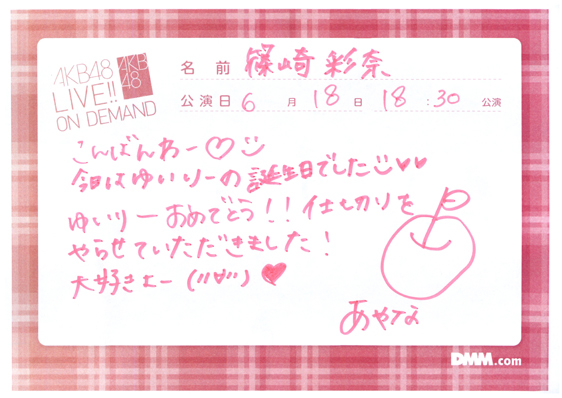 AKB48
LIVE!!
ON DEMAND
AKB
48
名 前 篠崎 彩奈
公演日 6 月 18 日 18 :30 公演
こんばんわー♡
今日はゆいりーの誕生日でした♥♥
ゆいりーおめでとう!!仕切りを
やらせていただきました!
大好きよー(//∀//)♥
あやな
DMM.com